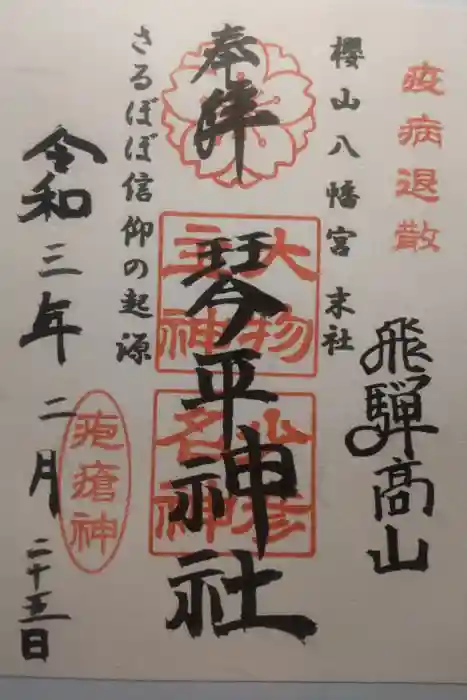 疫病退散
飛騨高山
櫻山八幡宮 末社
奉拝
琴平神社
大物
主神
少彦
名神
さるぼぼ信仰の起源
疱瘡神
令和三年二月二十五日